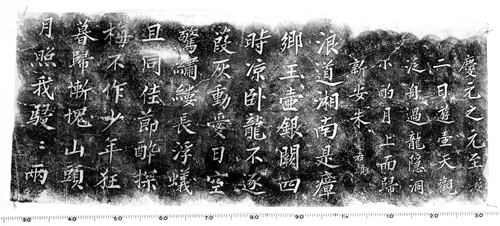 慶元之元至
二日遊壺天觀
泛舟過龍隱洞
小酌月上而歸
新安朱
浪道湖南是瘴
鄉玉壺銀闕四
時凉卧龍不逐
葭灰動愛日空
驚繡縷長浮蟻
且同佳節酔探
梅不作少年狂
暮歸慚愧山頭
月照我騣〻兩